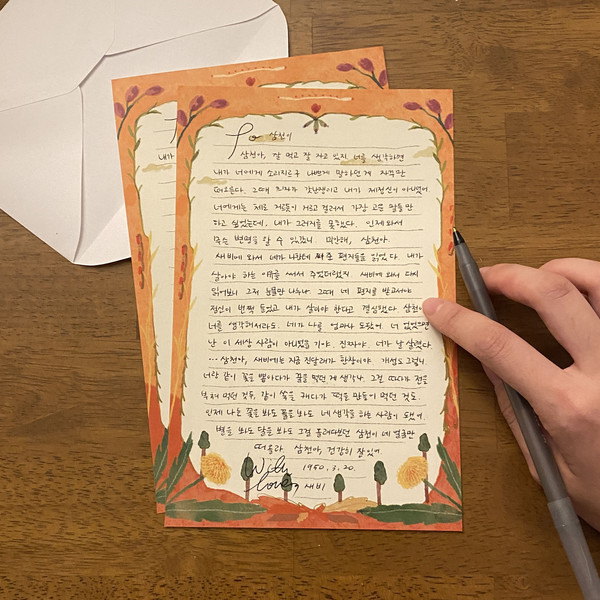 To 삼천이
삼천아, 잘 먹고 잘 자고 있지. 너를 생각하면
내가 너에게 소리지르구 나쁘게 말하던 게 자꾸만
떠오른다. 그때 희자두 갓난쟁이고 내가 제정신이 아니었어.
너에게는 체로 거르듯이 거르고 걸러서 가장 고운 말들만
하고 싶었는데, 내가 그러지를 못했다. 인제 와서
무슨 변명을 할 수 있겠니. 미안해, 삼천아.
새비에 와서 네가 나한테 써 준 편지들을 읽었다. 내가
살아야 하는 이유를 써서 주었더랬지. 새비에 와서 다시
읽어보니 그저 눈물만 나누나. 그때 네 편지를 받고서야
정신이 번쩍 들었고 내가 살아야 한다고 결심했다. 삼천이
너를 생각해서라도. 네가 나를 얼마나 도왔어. 너 없었으면
난 이 세상 사람이 아니었을 기야. 진짜야. 너가 날 살렸다.
… 삼천아, 새비에는 지금 진달래가 한창이야. 개성도 그렇니.
너랑 같이 꽃을 뽑아다가 꿀을 먹던 게 생각나. 그걸 따다가 전을
부쳐 먹던 것두 같이 쑥을 캐다가 떡을 만들어 먹던 것도.
인제 나는 꽃을 봐도 풀을 봐도 네 생각을 하는 사람이 됐어.
별을 봐도 달을 봐도 그걸 올려다보던 삼천이 네 얼굴만
떠올라. 삼천아, 건강히 잘 있어.
With 1950. 3. 20.
love, 새비
내가